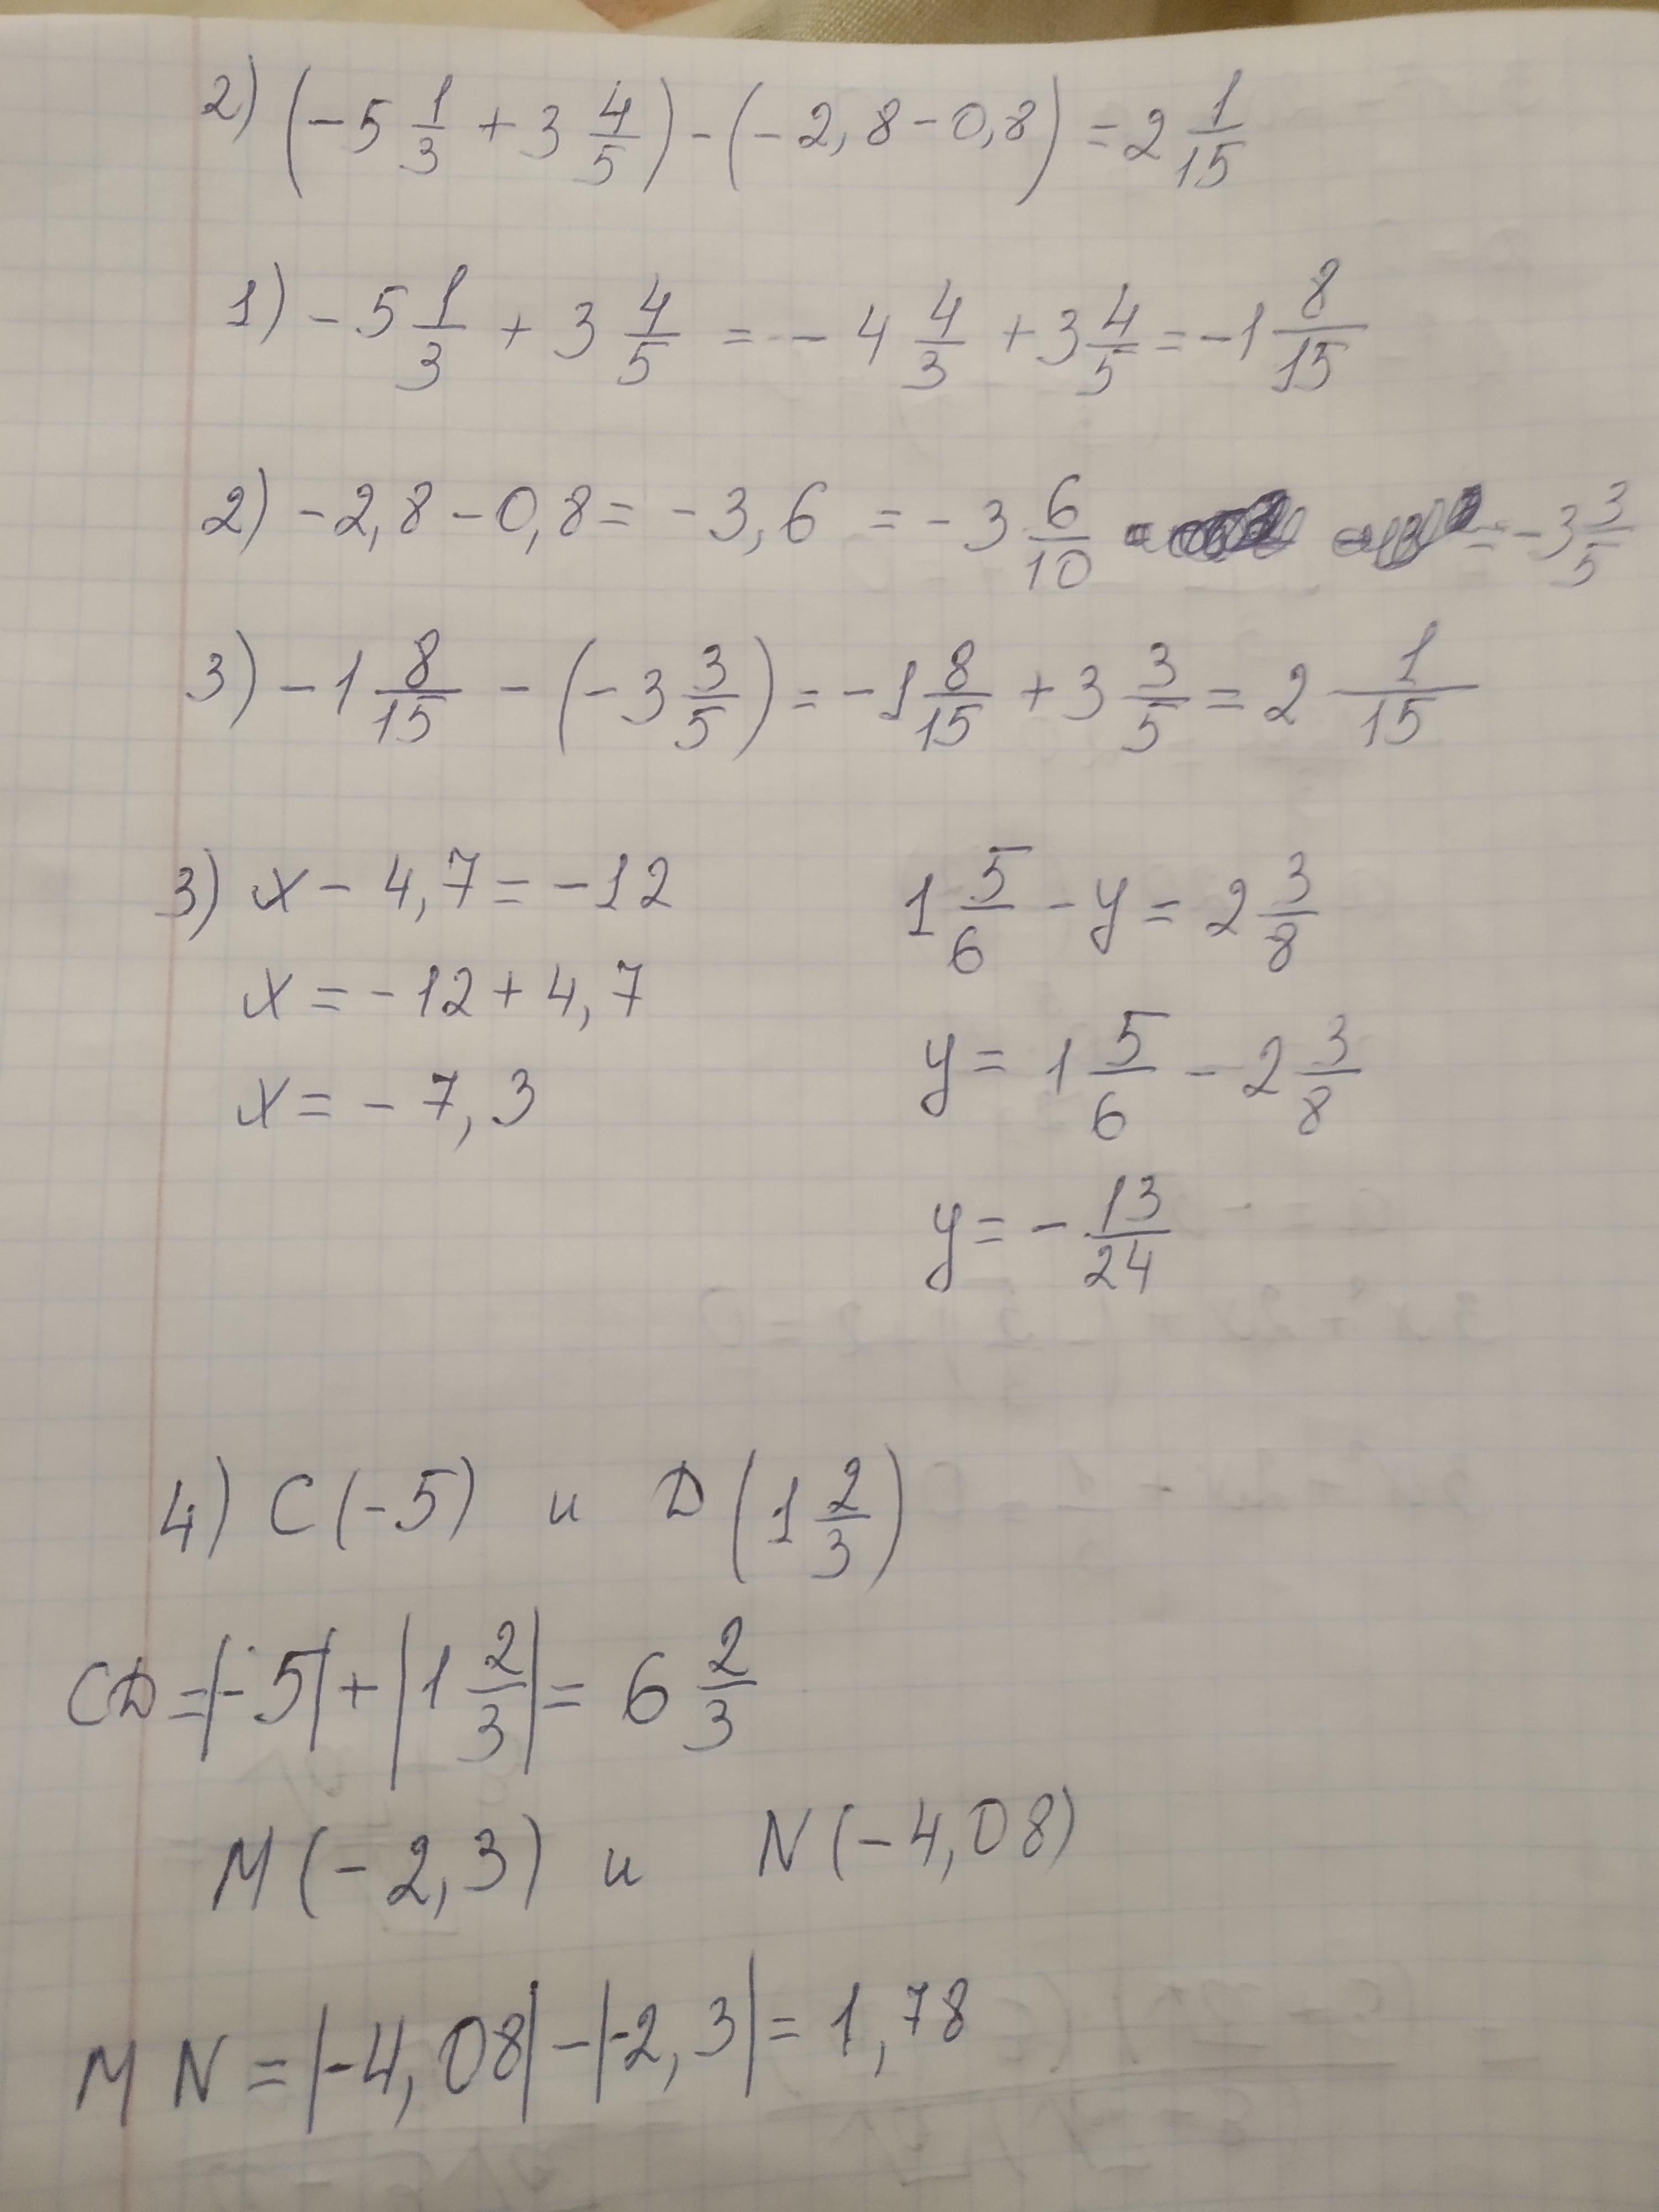 2) (-5 1/3 + 3 4/5) - (-2,8 - 0,8) = 2 1/15
1) -5 1/3 + 3 4/5 = -4 4/3 + 3 4/5 = -1 8/15
2) -2,8 - 0,8 = -3,6 = -3 6/10 = -3 3/5
3) -1 8/15 - (-3 3/5) = -1 8/15 + 3 3/5 = 2 1/15
3) x - 4,7 = -12
x = -12 + 4,7
x = -7,3
1 5/6 - y = 2 3/8
y = 1 5/6 - 2 3/8
y = -13/24
4) C(-5) и D(1 2/3)
CD = |-5| + |1 2/3| = 6 2/3
M(-2,3) и N(-4,08)
MN = |-4,08| - |-2,3| = 1,78